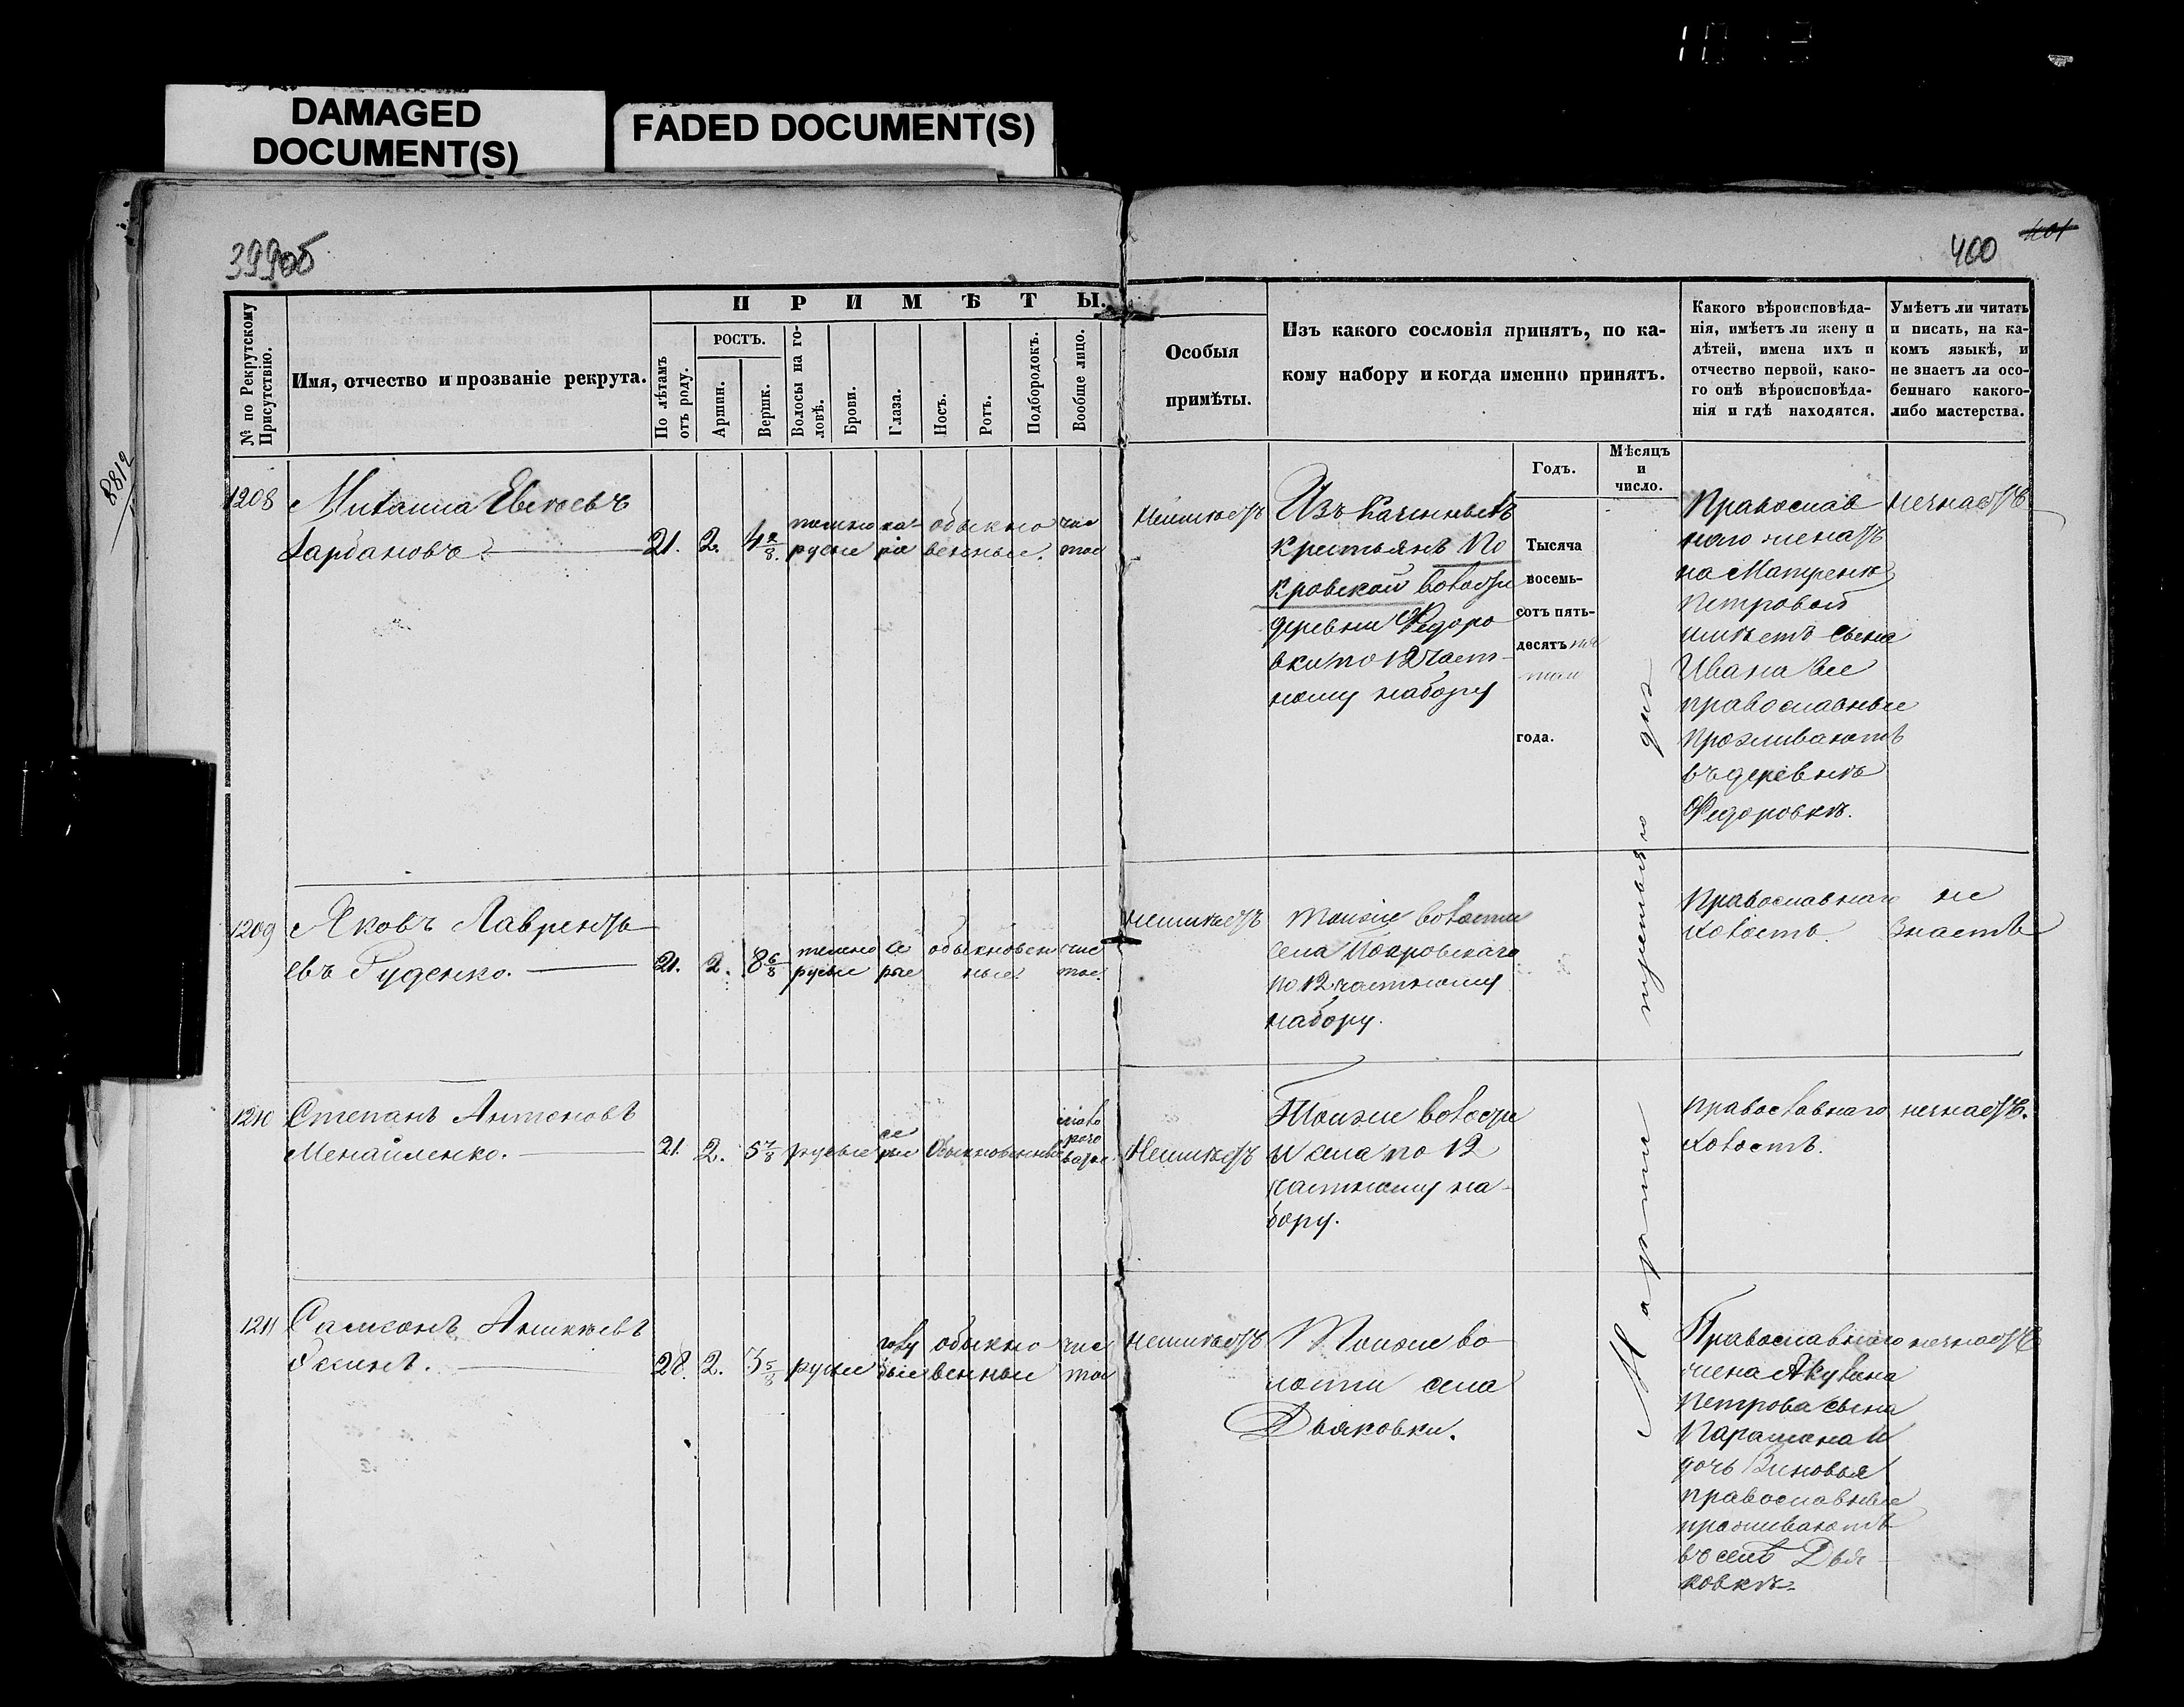 DAMAGED
DOCUMENT(S)
FADED DOCUMENT(S)
399об
400
401
8819
№ по Рекрутскому
Присутствію.
Имя, отчество и прозваніе рекрута.
П Р И М Ѣ Т Ы.
По лѣтамъ
отъ роду.
РОСТЪ.
Аршин.
Вершк.
Волосы на го-
ловѣ.
Брови.
Глаза.
Носъ.
Ротъ.
Подбородокъ.
Вообще лицо.
Особыя
примѣты.
Изъ какого сословія принятъ, по ка-
кому набору и когда именно принятъ.
Какого вѣроисповѣда-
нія, имѣетъ ли жену и
дѣтей, имена ихъ и
отчество первой, како-
го онѣ вѣроисповѣда-
нія и гдѣ находятся.
Умѣетъ ли читать
и писать, на ка-
комъ языкѣ, и
не знаетъ ли осо-
беннаго какого-
либо мастерства.
Годъ.
Мѣсяцъ
и
число.
Тысяча
восемь-
сотъ пять-
десятъ пя
таго
года.
Марта третьяго дня
1208
Михаила
21. 2. 4 2/8.
темно
русые
ка-
ріе
обыкно
венные.
чис
тое
Неимѣетъ
Изъ Казенныхъ
крестьянъ По
кровской волости
деревни Федоро
вки по 12 част-
ному набору
Православ
наго женатъ
на Матренѣ
Петровой
имѣетъ сына
Ивана все
православные
проживаютъ
въ деревнѣ
Федоровкѣ.
незнаетъ
1209
Яковъ Лавренть
евъ Руденко.
21. 2. 8 6/8
темно
русые
се
рые
обыкновен
ные
чис
тое.
неимѣетъ
тойже волости
села Покровскаго
по 12 частному
набору.
Православнаго
холостъ.
не
знаетъ
1210
Степанъ Антоновъ
Менайленко.
21. 2. 5 7/8
русые
се
рые
Обыкновенные
Неимѣетъ
Тойже волости
и села по 12
частному на-
бору.
православнаго
холостъ.
незнаетъ.
1211
Самсонъ
28. 2. 3 5/8
русые
голу
бые
обыкно
венные
чис
тое
неимѣетъ
Тойже во
лости села
Дьяковки.
Православнаго
жена Акулина
Петрова сына
Парамона и
дочь Зиновья
православные
проживаютъ
въ селѣ Дья-
ковкѣ.
незнаетъ